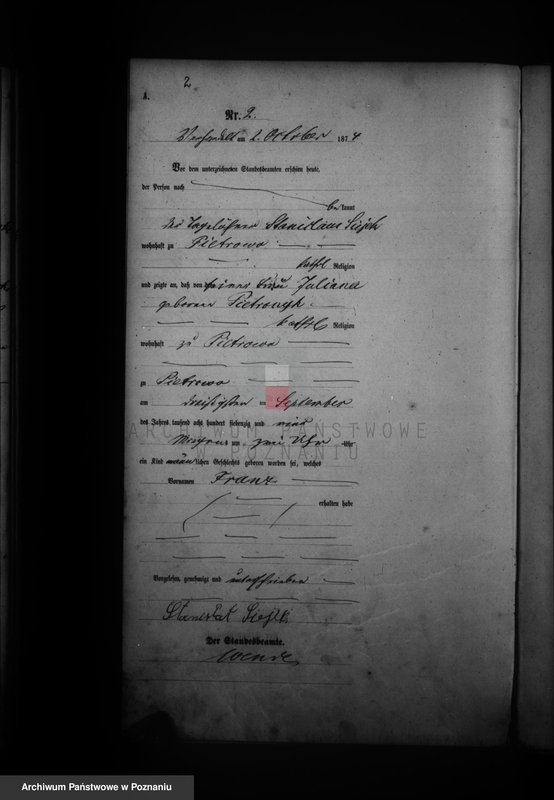 2
A.
Nr. 2.
Verhandelt am 2. October 1874
Vor dem unterzeichneten Standesbeamten erschien heute,
der Person nach
bekannt
der Tagelöhner Stanislaus
wohnhaft zu Pietrowo
kathol Religion
und zeigte an, daß von seiner Frau Juliana
geboren
kathol Religion
wohnhaft zu Pietrowo
zu Pietrowo
am dreißigsten September
des Jahres tausend acht hundert siebenzig und vier
Morgens um zwei Uhr
ein Kind männlichen Geschlechts geboren worden sei, welches
Vornamen Franz
erhalten habe
Vorgelesen, genehmigt und unterschrieben
Der Standesbeamte.
ARCHIWUM PAŃSTWOWE
W POZNANIU
Archiwum Państwowe w Poznaniu